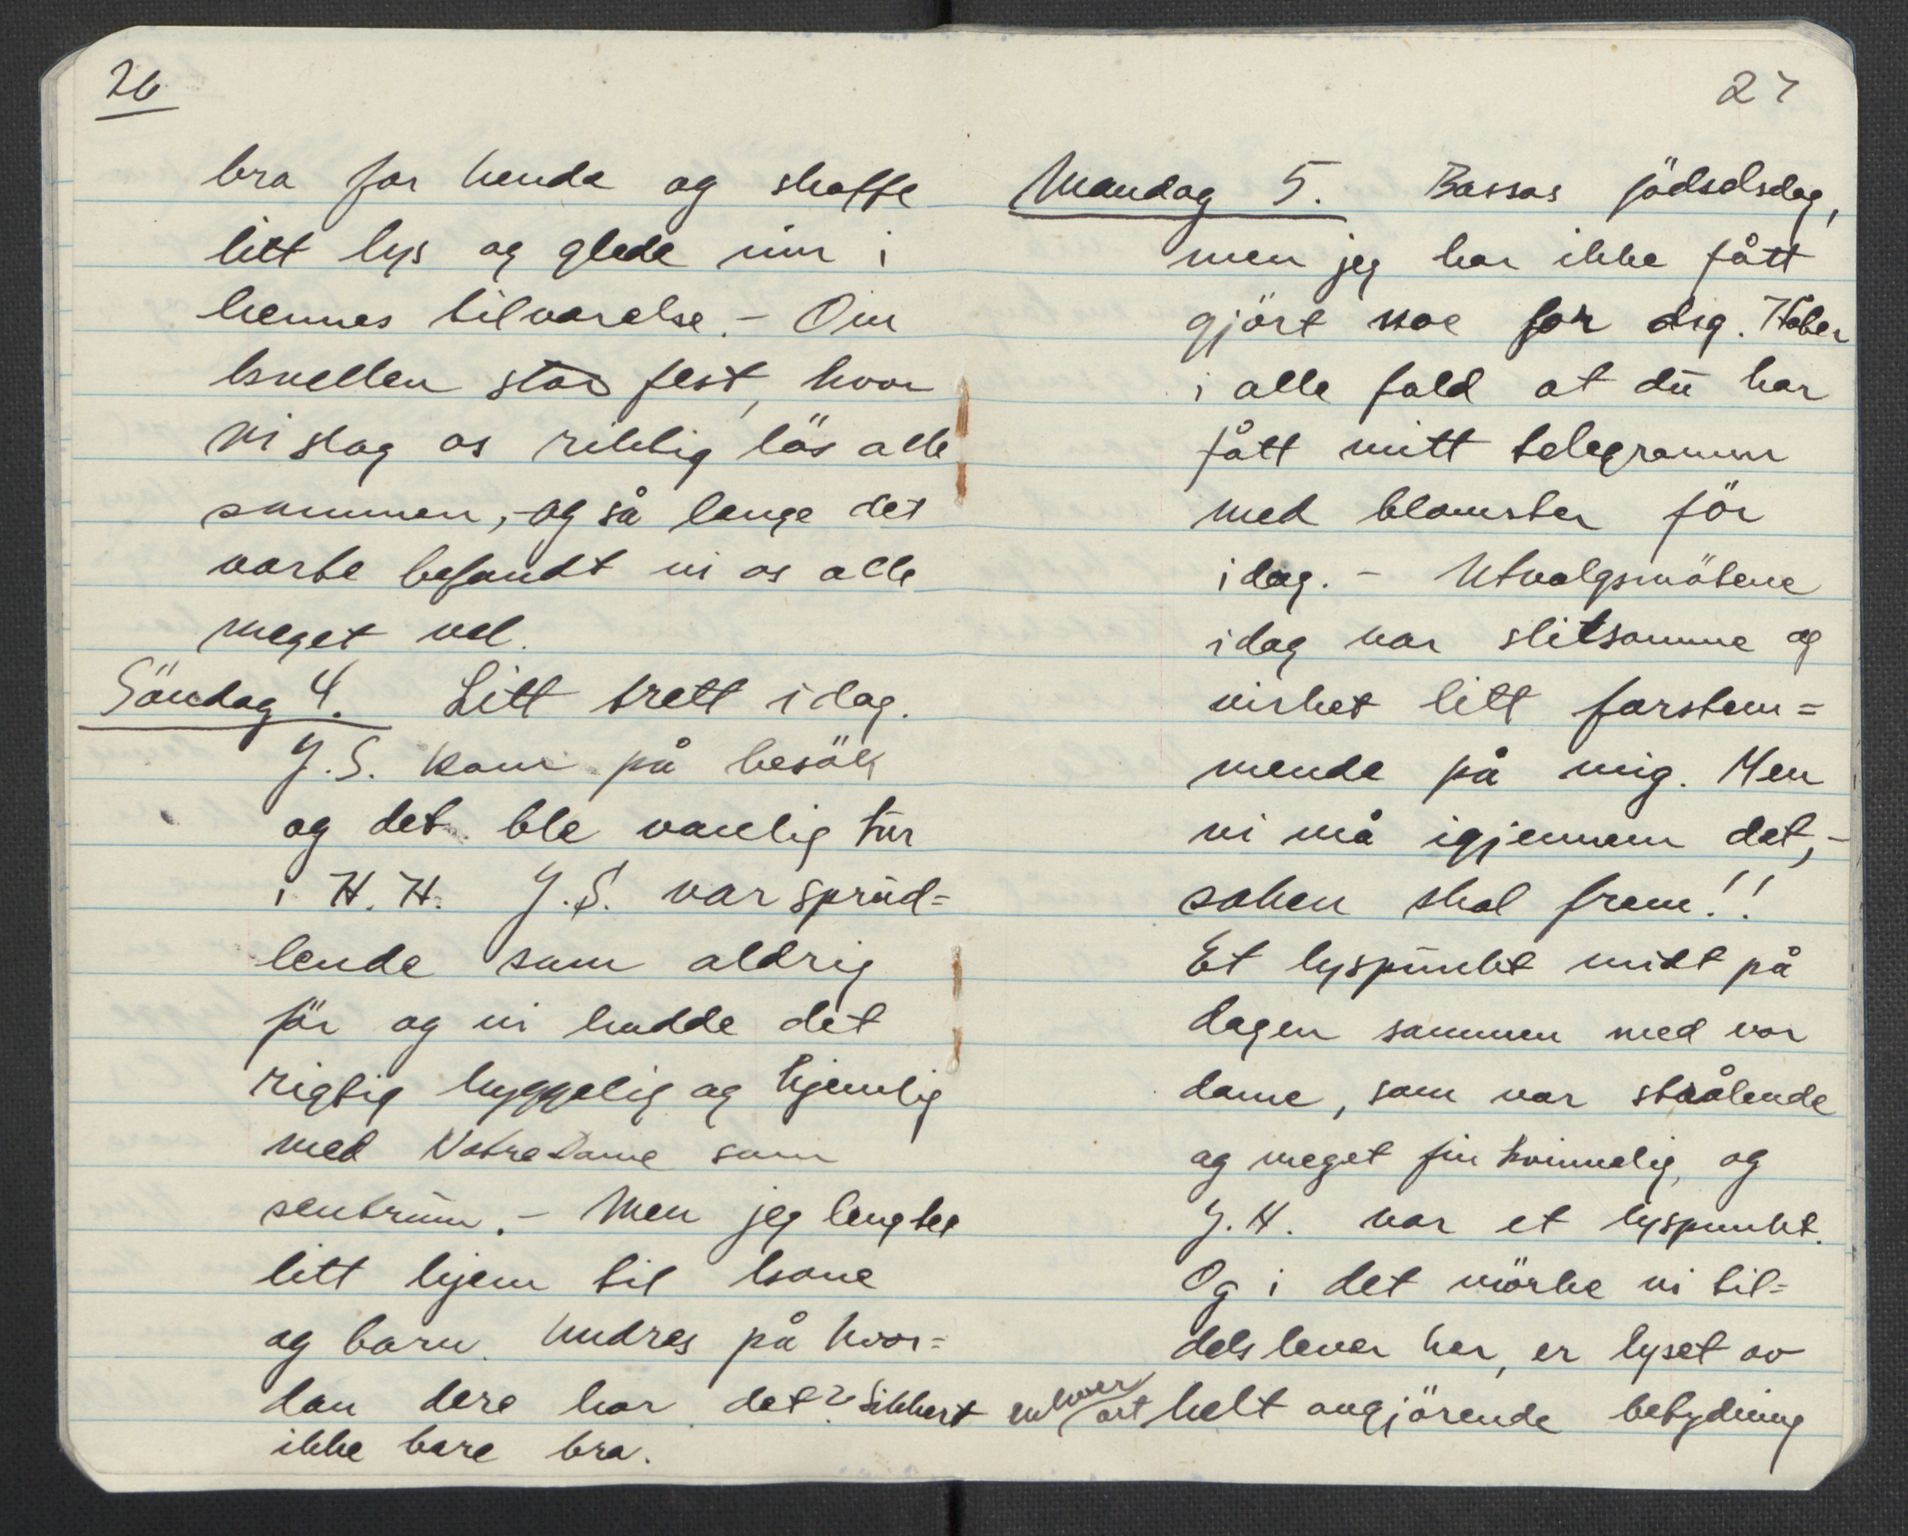 26
bra for henda og skaffe
litt lys og glede inn i
hennes tilvarelse. – Om
kvellen stor fest, hvor
vi slog os riktig lös alle
sammen, – og så lenge det
varte befandt vi os alle
meget vel.
Söndag 4. Litt trett idag.
J.S. kom på besök
og det ble vanlig tur
i H.H. J.S. var sprud=
lende som aldrig
för og vi hadde det
rigtig hyggelig og hjemlig
med Notre Dame som
sentrum. – Men jeg lengtet
litt hjem til kone
og barn. Undres på hvor=
dan dere har det? Sikkert
ikke bare bra.
27
Mandag 5. Bassas födselsdag,
men jeg har ikke fått
gjört noe for dig. Håber
i alle fald at du har
fått mitt telegramm
med blomster för
idag. – Utvalgsmötene
idag var slitsomme og
virket litt forstem=
mende på mig. Men
vi må igjennem det, –
saken skal frem!!
Et lyspunkt midt på
dagen sammen med vor
dame, som var strålende
og meget fin kvinnelig, og
J.H. var et lyspunkt.
Og i det mörke vi til=
dels lever her, er lyset av
enhver art helt avgjörende betydning